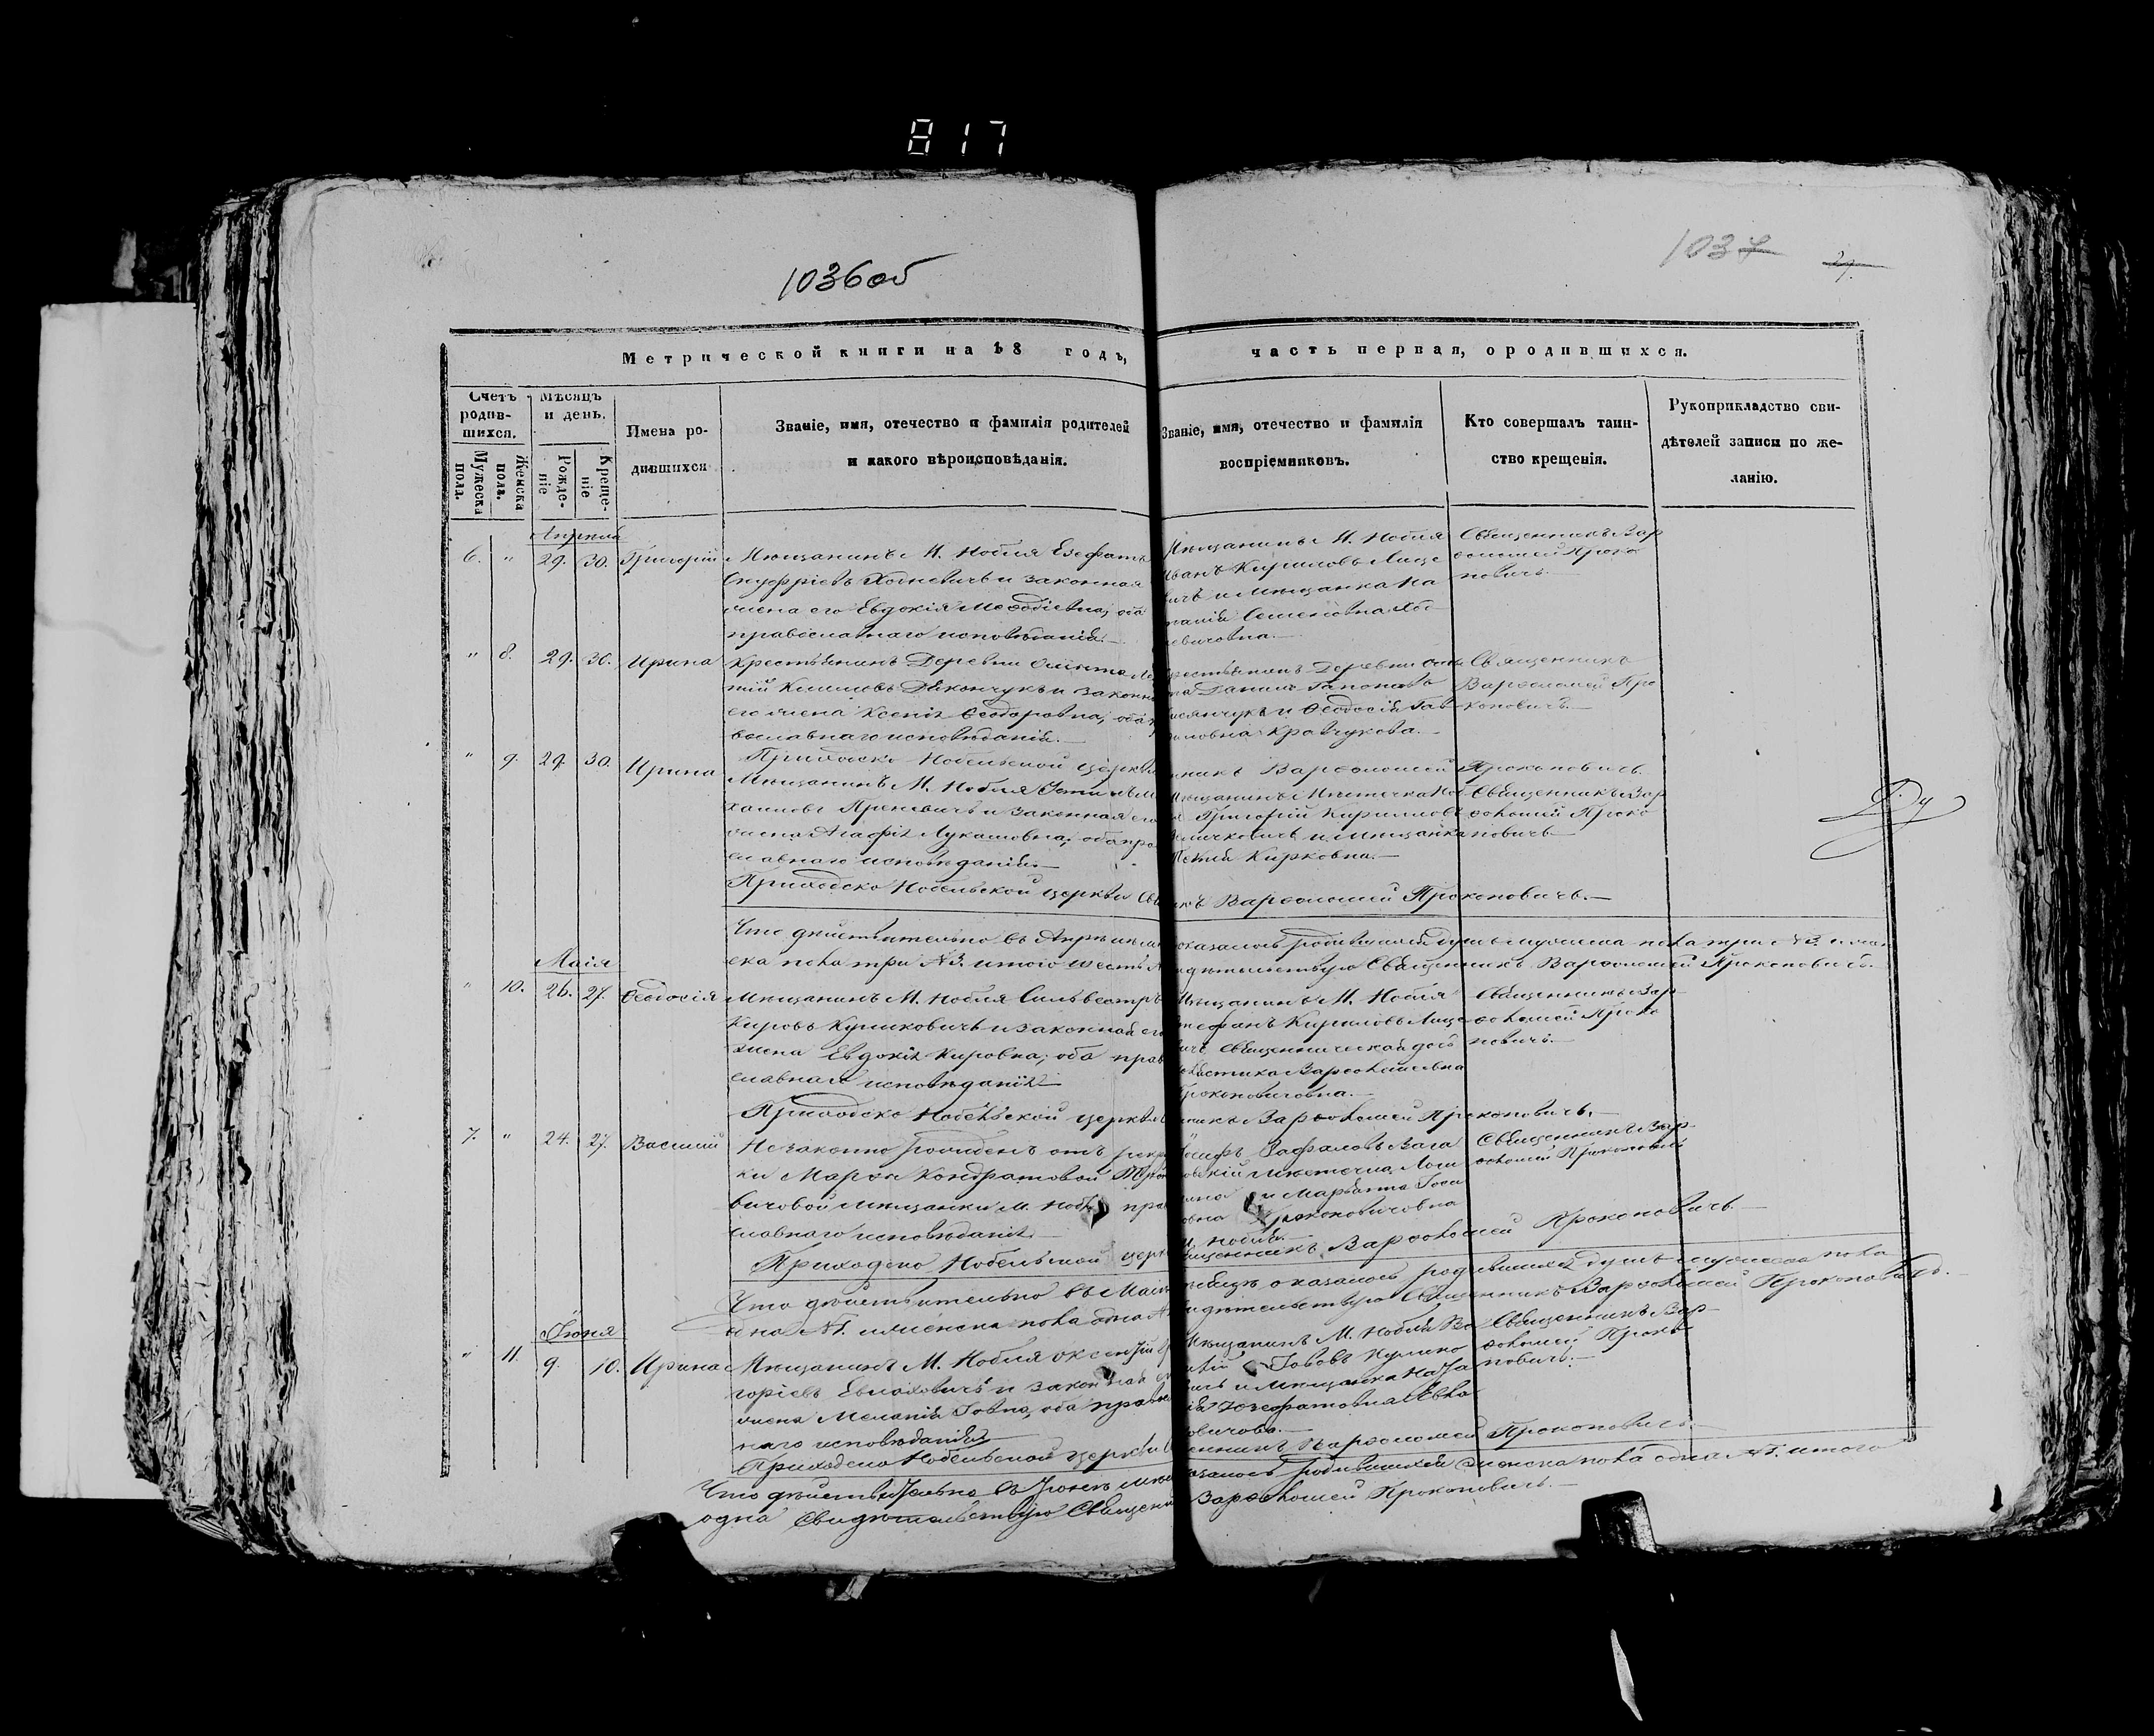 817
1036об
1037
27.
Метрической книги на 18 годъ, часть первая, о родившихся.
Счетъ родив-шихся.
Мужеска пола.
Женска пола.
Мѣсяцъ и день.
Рожде-ніе
Креще-ніе
Имена ро-
дившихся
Званіе, имя, отечество и фамилія родителей
и какого вѣроисповѣданія.
Званіе, имя, отечество и фамилія
воспріемниковъ.
Кто совершалъ таин-
ство крещенія.
Рукоприкладство сви-
дѣтелей записи по же-
ланію.
Апреля
6. " 29. 30. Григорій
Мѣщанинъ М. Нобля Езефатъ
Онуфріевъ Ходневичъ и законная
жена его Евдокія Меѳодіевна; оба
православнаго исповѣданія.—
Мѣщанинъ М. Нобля
Иванъ Кириловъ Лице
вичъ и мѣщанка На
талія Семеновна Ход
невичовна.—
Священникъ Вар
ѳоломей Проко
повичъ.—
" 8. 29. 30. Ирина
Крестьянинъ Деревни
его жена Ксенія Ѳеодоровна; оба
вославнаго исповѣданія.—
Крестьянинъ Деревни
Данилъ Гапоновъ
и Ѳеодосія Гав
риловна Кравчукова.—
Священникъ
Варѳоломей Про
коповичъ.—
Приходско Нобельской церкви священникъ Варѳоломей Прокоповичъ.
" 9. 29. 30. Ирина
Мѣщанинъ М. Нобля Устинъ Ми
хаиловъ Яреневичъ и законная его
жена Агафія Лукашовна; оба пра
славнаго исповѣданія.—
Мѣщанинъ Мѣстечка Но
Григорій Кириловъ
и мѣщанка
Кирковна.—
Священникъ Вар
ѳоломей Проко
повичъ
Приходско Нобельской церкви Священникъ Варѳоломей Прокоповичъ.—
Что дѣйствительно въ Апрѣлѣ м оказалось родившихся душъ мужеска пола три №3. и жен
ска пола три №3. итого шесть свидѣтельствую Священникъ Варѳоломей Прокоповичъ.
Маія
" 10. 26. 27. Ѳеодосія
Мѣщанинъ М. Нобля Сильвестръ
Кировъ Куликовичъ и законная его
жена Евдокія Кировна; оба право
славнаго исповѣданія
Мѣщанинъ М. Нобля
Стефанъ Кириловъ Лице
вичъ священническая дочь
Варѳоломеевна
Прокоповичовна.—
Священникъ Вар
ѳоломей Проко
повичъ.—
Приходско Нобельской церкви священникъ Варѳоломей Прокоповичъ.—
7. " 24. 27. Василій
Незаконно рожденъ отъ рекрут
ки Марѳы Кондратовой
вичовой мѣщанки М. Нобля право
славнаго исповѣданія.—
Іосифъ Рафаловъ Зага
ровскій мѣстечка
и Марьянна Іоси
фовна Прокоповичовна
М. Нобля.—
Священникъ Вар
ѳоломей Прокоповичъ
Приходско Нобельской церкви священникъ Варѳоломей Прокоповичъ.—
Что дѣйствительно въ Маіи мѣсяцѣ оказалось родившихся душъ мужеска пола
одна №1. и женска пола одна №1 свидѣтельствую Священникъ Варѳоломей Прокоповичъ.—
Іюня
" 11. 9. 10. Ирина
Мѣщанинъ М. Нобля Оксентій Гри
горіевъ Евлаховичъ и законная его
жена Меланія Іовна, оба православ
наго исповѣданія
Мѣщанинъ М. Нобля Ва
силій Іововъ Кулико
вичъ и мѣщанка Ната
лія Іозефатовна Евла
ховичова.—
Священникъ Вар
ѳоломей Проко
повичъ.—
Приходско Нобельской церкви Священникъ Варѳоломей Прокоповичъ.
Что дѣйствительно въ Іюнѣ мѣсяцѣ оказалось родившихся женска пола одна №1. итого
одна Свидѣтельствую Священникъ Варѳоломей Прокоповичъ.—